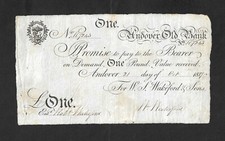 One.
Andover Old Bank
Promise to pay to the Bearer
on Demand, One Pound, Value received.
Andover 21 day of Oct
For W. S. Wakeford & Sons.
£ One.
Entd.